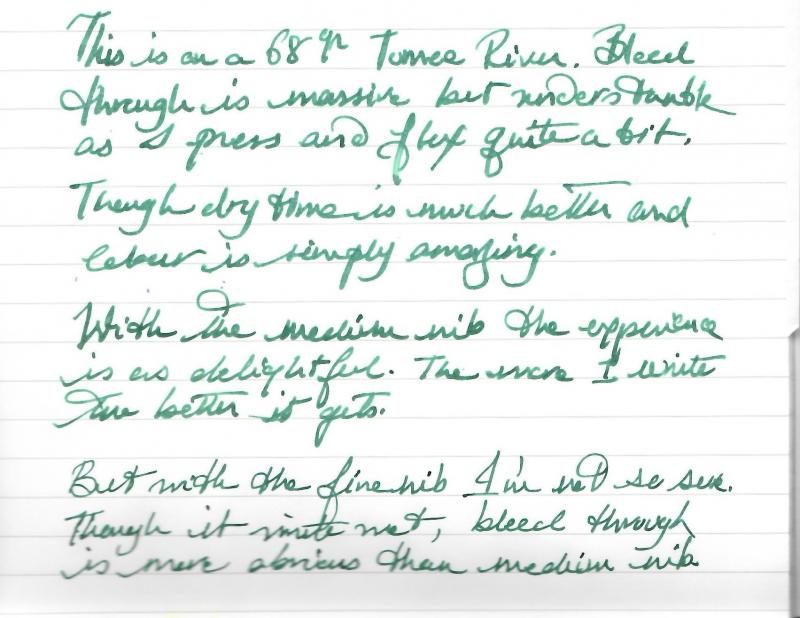 This is on a 68 gr Tomoe River. Bleed
through is massive but understandable
as I press and flex quite a bit.
Though dry time is much better and
colour is simply amazing.
With the medium nib the experience
is as delightful. The more I write
the better it gets.
But with the fine nib I'm not so sure.
Though it write wet, bleed through
is more obvious than medium nib